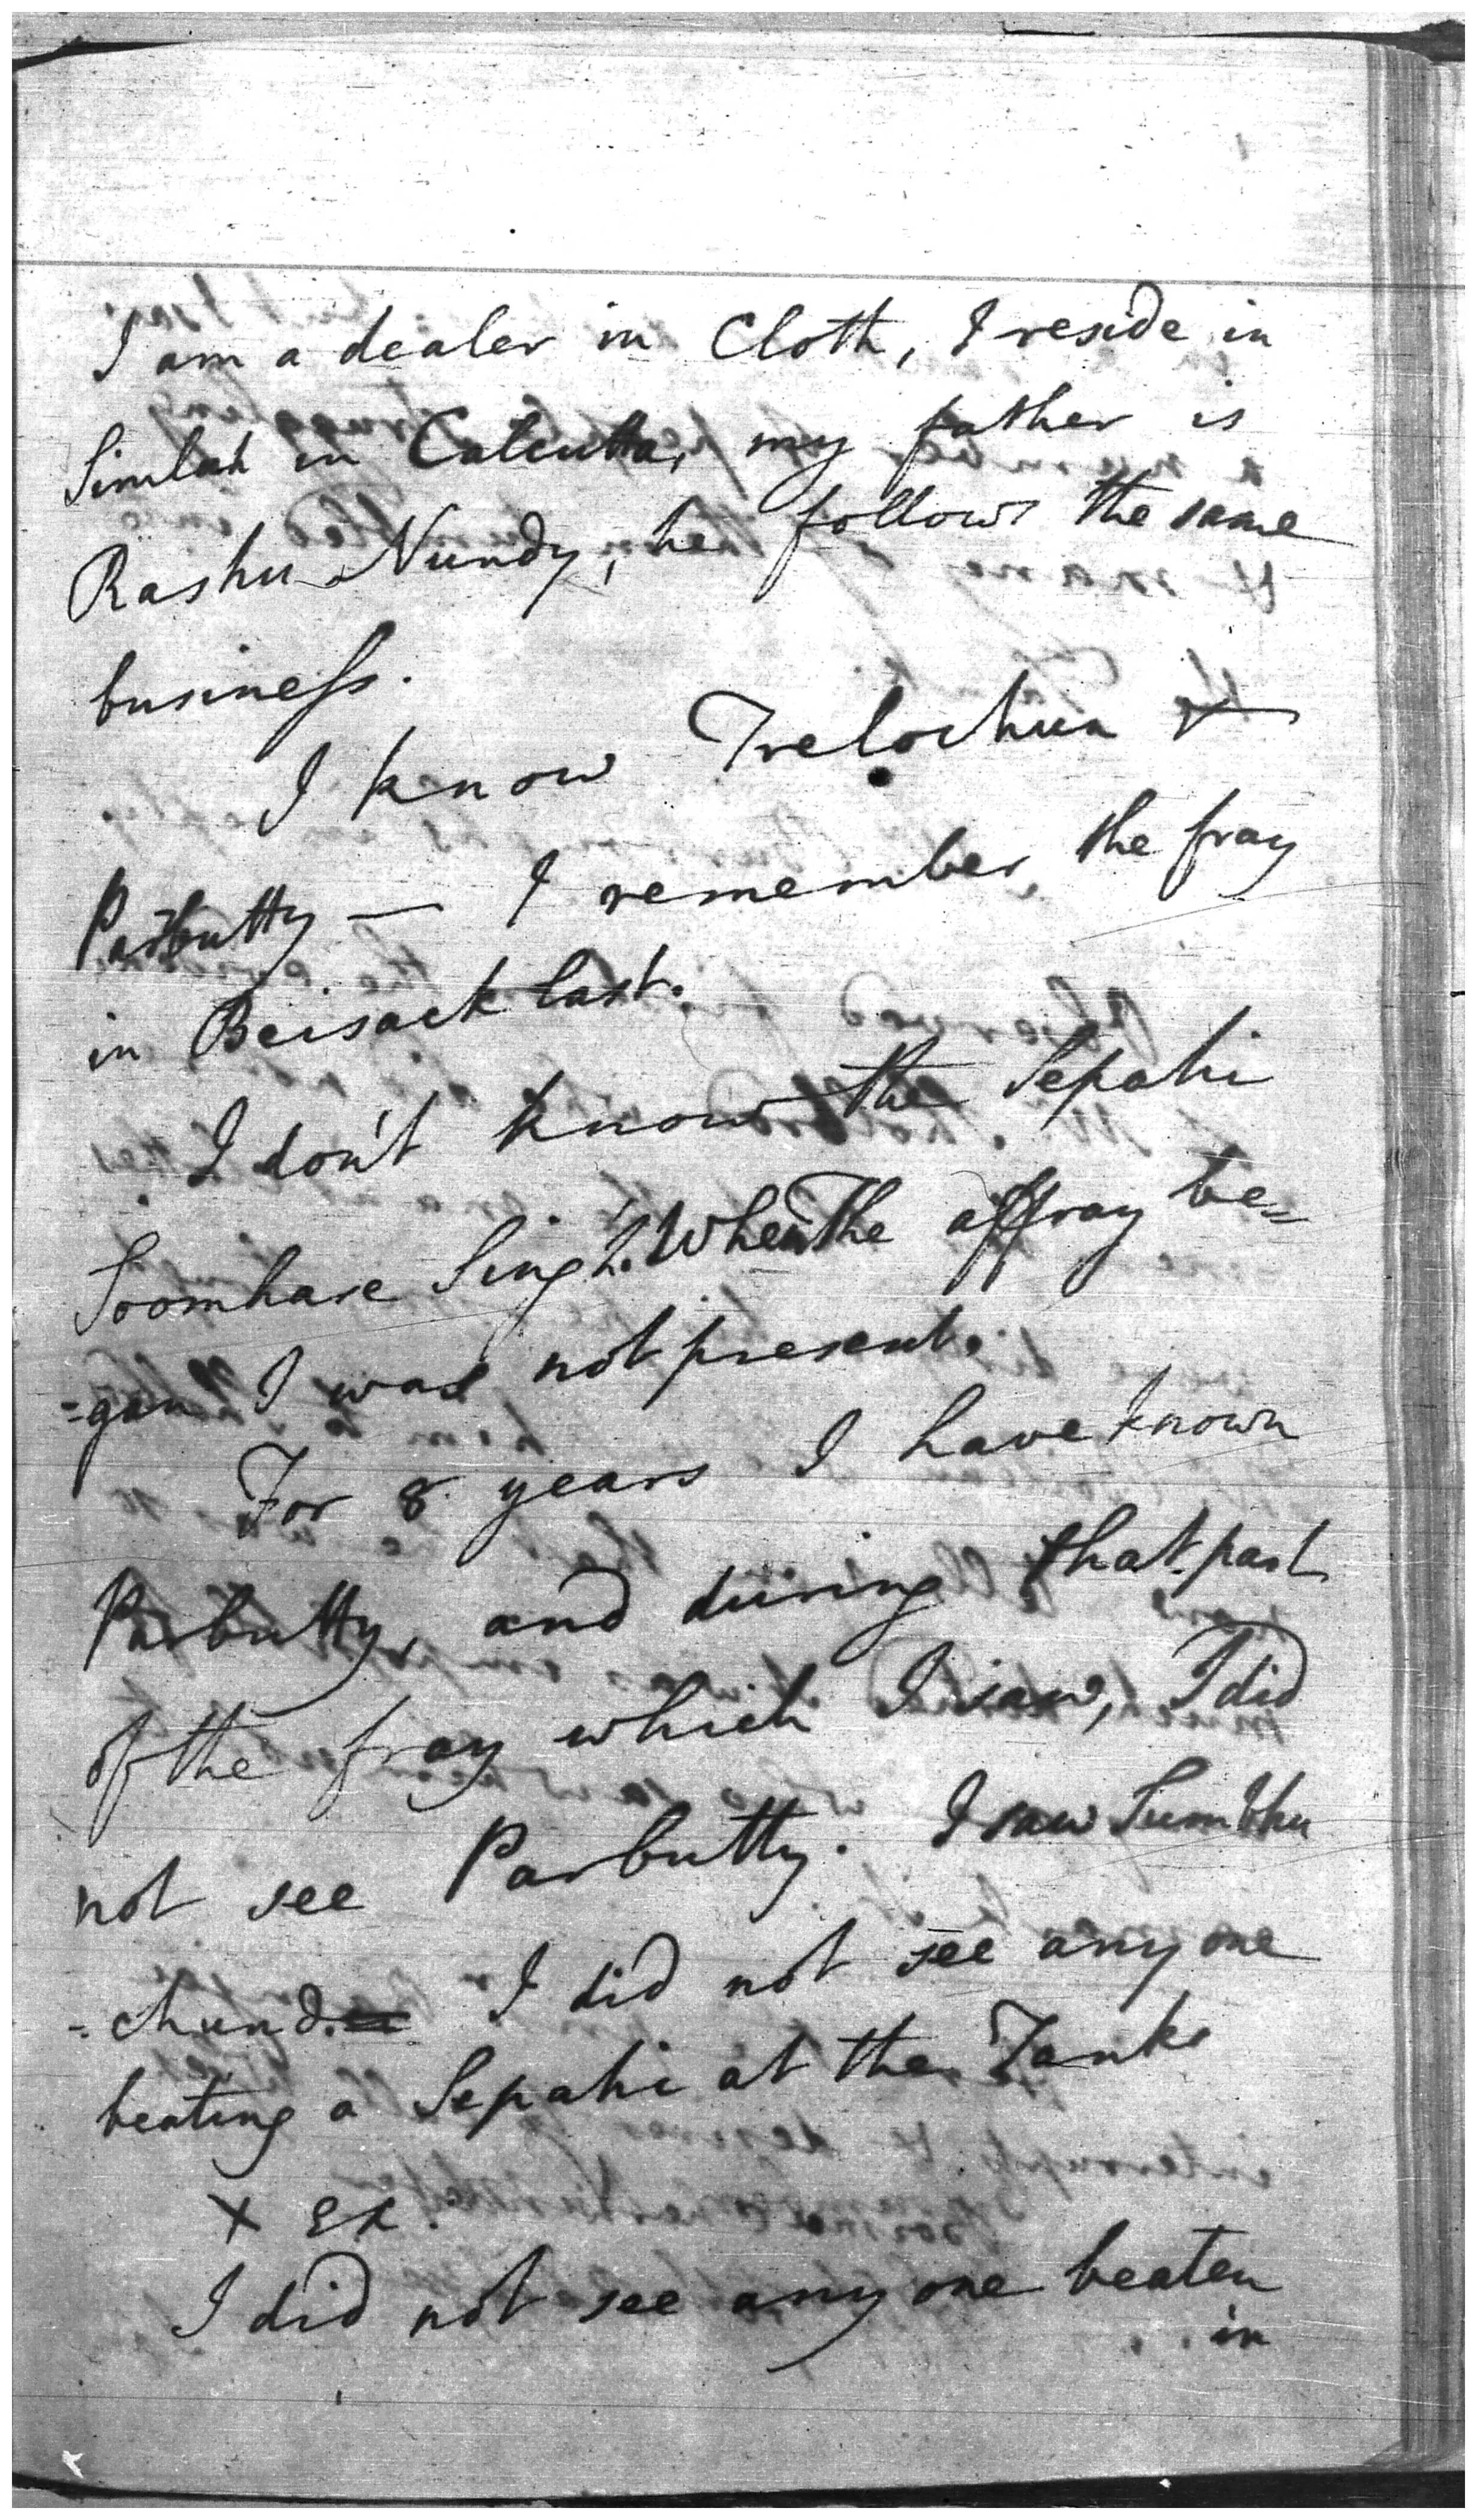 I am a dealer in Cloth, I reside in
Simlah in Calcutta, my father is
Rashu Nundy, he follows the same
business.
I know Trelochun &
Parbutty — I remember the fray
in Beisack last.
I don't know the Sepahi
Soomhare Singh. When the affray be=
=gan I was not present.
For 8 years I have known
Parbutty, and during that part
of the fray which I saw, I did
not see Parbutty. I saw Sumbhu
-chund. I did not see any one
beating a Sepahi at the Tanks
X Ex.
I did not see any one beaten
in